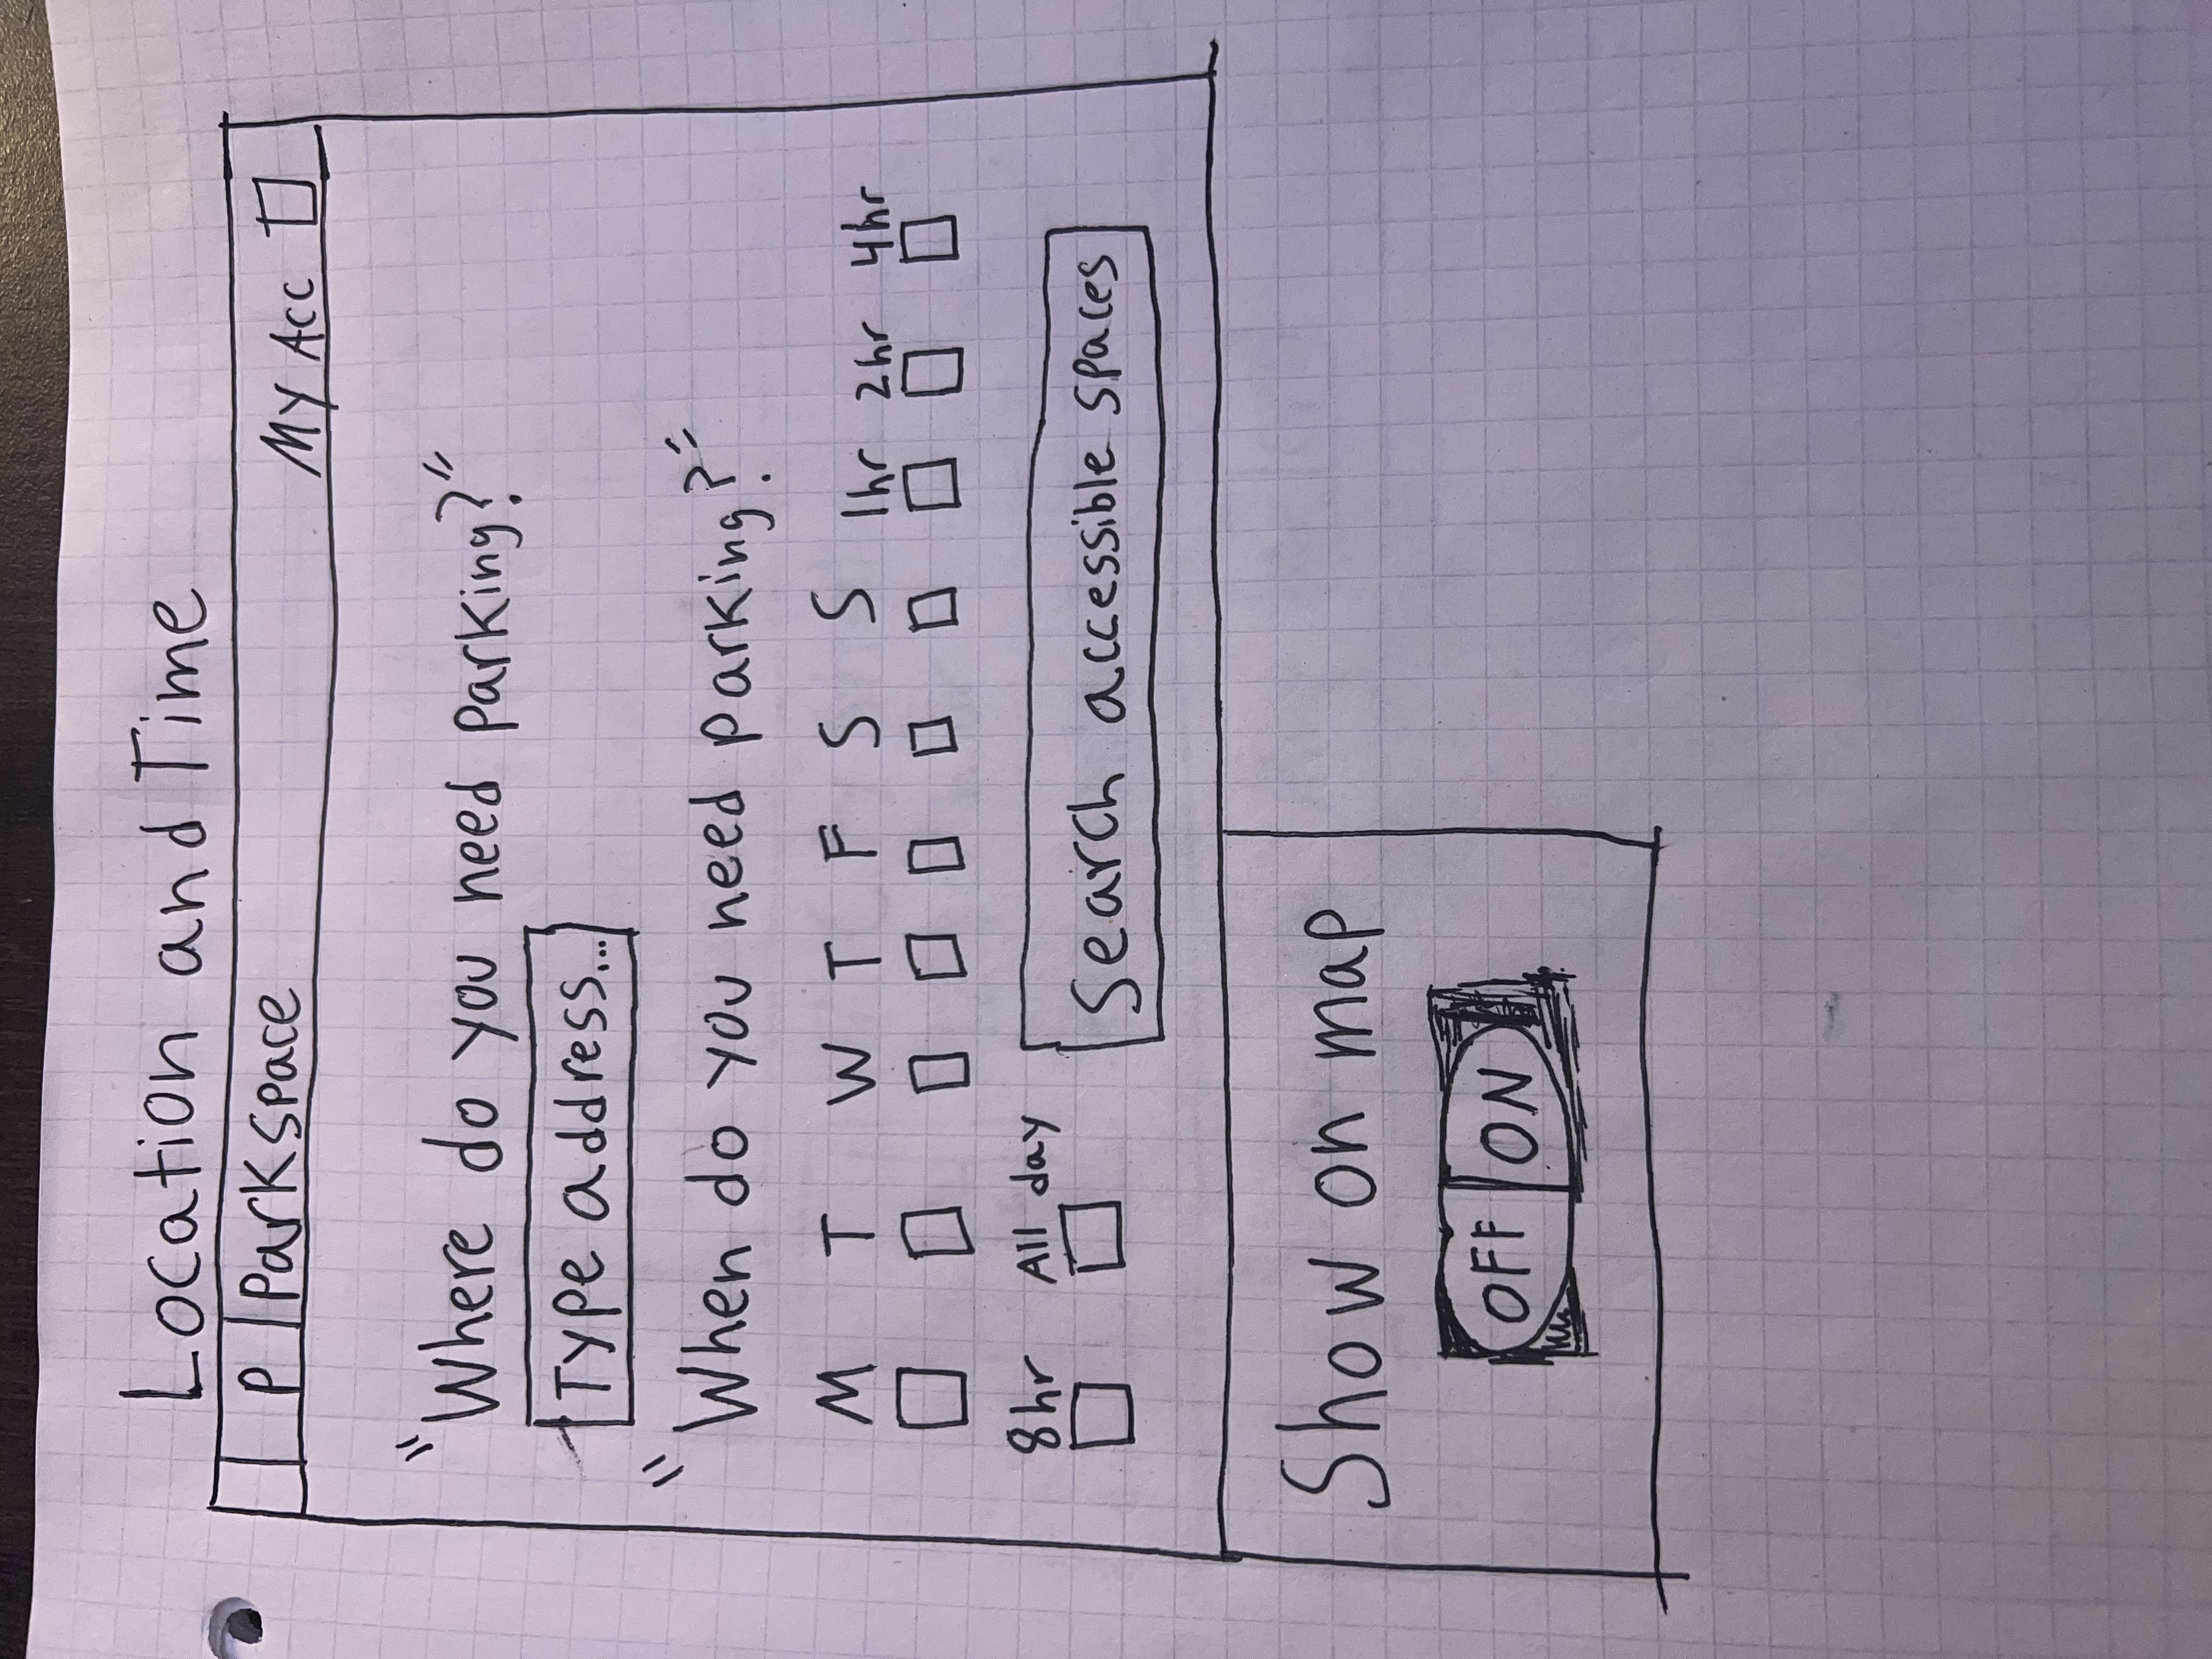 Location and Time
P Parkspace My Acc
"Where do you need parking?"
Type address...
"When do you need parking?"
M T W T F S S 1hr 2hr 4hr
8hr All day
Search accessible spaces
Show on map
OFF ON